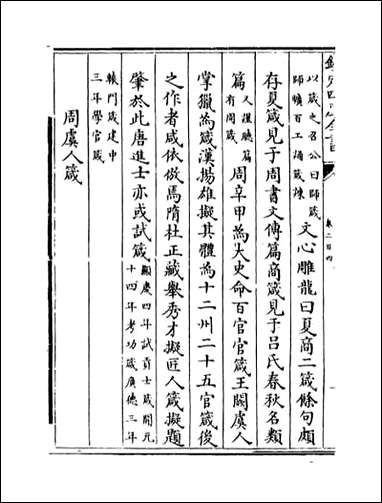 欽定四庫全書
卷二百四
以箴之召公曰師箴
師曠百工誦箴諫
文心雕龍曰夏商二箴餘句頗
存夏箴見于周書文傳篇商箴見于呂氏春秋名類
篇
又謹聽篇
有周箴
周辛甲為大史命百官官箴王闕虞人
掌獵為箴漢揚雄擬其體為十二州二十五官箴後
之作者咸依倣焉隋杜正藏舉秀才擬匠人箴擬題
肇於此唐進士亦或試箴
顯慶四年試貢士箴開元
十四年考功箴廣德三年
轅門箴建中
三年學官箴
周虞人箴